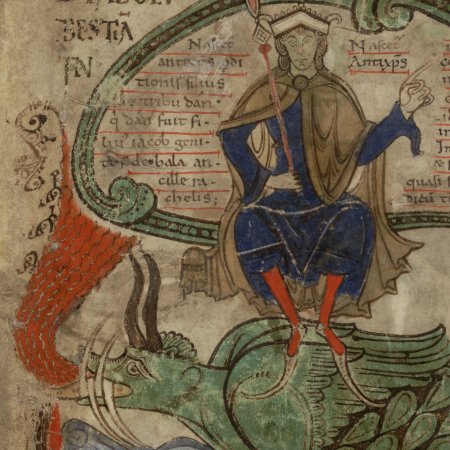 BESTIA
IN
Nascet
antixps pdi
tionis filius
de tribu dan
q dan fuit fi
lius iacob geni
de bala an
cille ra
chelis;
Nascet
Antixps
quasi